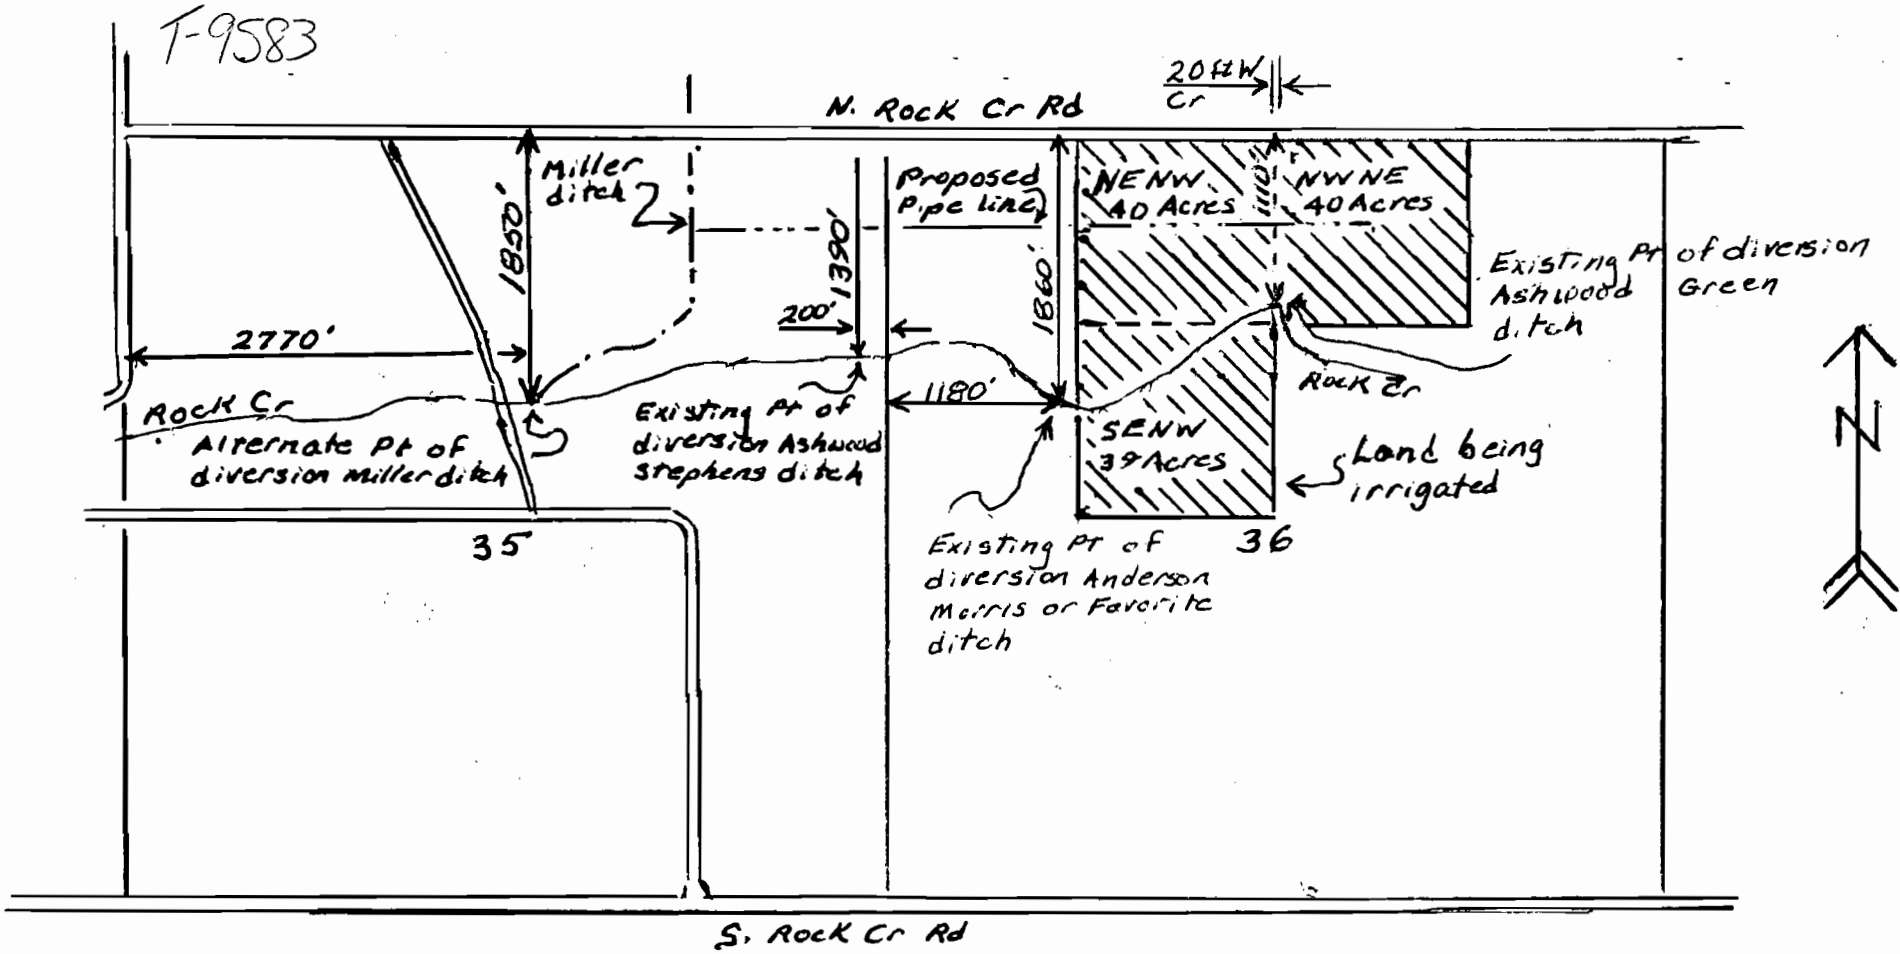 T-9583
20 ft W
Cr
N. Rock Cr Rd
Miller
ditch
1850'
1390'
Proposed
Pipe line
1860'
NENW
40 Acres
1110'
NWNE
40 Acres
Existing Pt of diversion
Ashwood Green
ditch
200'
2770'
Rock Cr
Alternate Pt of
diversion Miller ditch
Existing Pt of
diversion Ashwood
Stephens ditch
1180'
Rock Cr
SENW
39 Acres
Land being
irrigated
N
35
36
Existing Pt of
diversion Anderson
Morris or Favorite
ditch
S. Rock Cr Rd